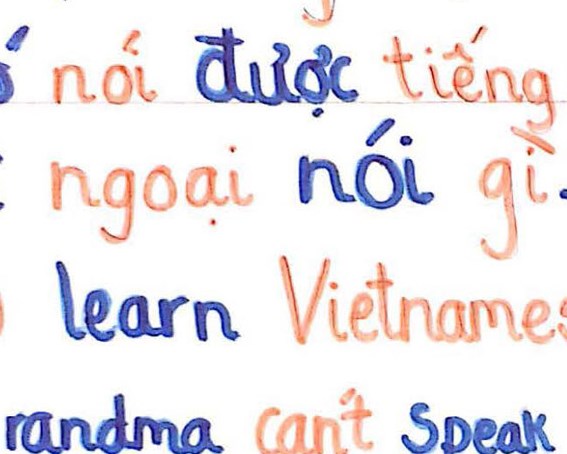 nói được tiếng
ngoại nói gì.
learn Vietnames
randma can't speak